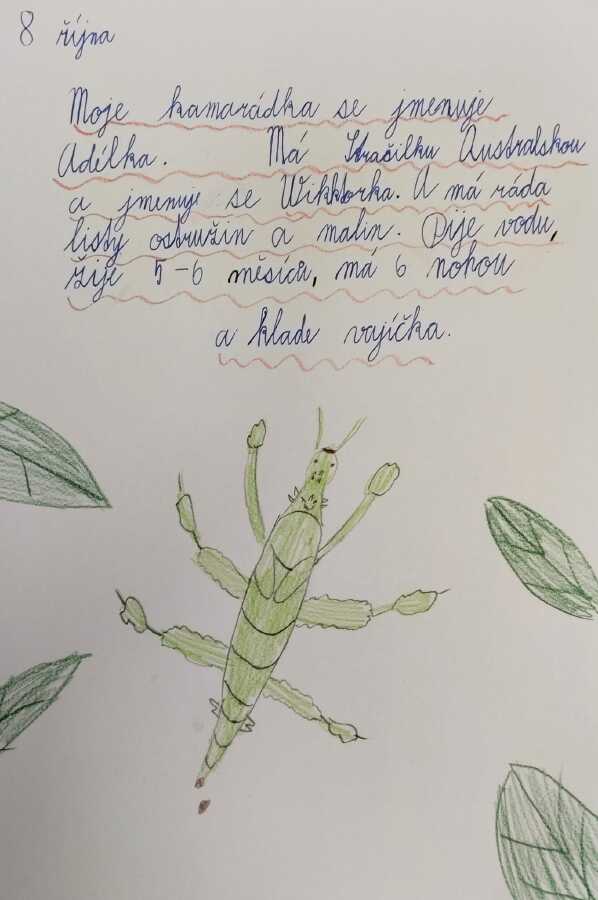 8 října
Moje kamarádka se jmenuje
Adélka. Má Strašilku Australskou
a jmenuje se Wikktorka. A má ráda
listy ostružin a malin. Pije vodu,
žije 5-6 měsíců, má 6 nohou
a klade vajíčka.